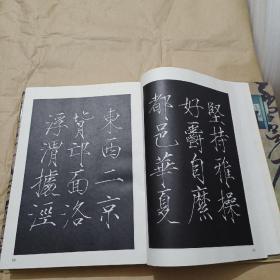 堅持雅操
好爵自縻
都邑華夏
東西二京
背邙面洛
浮渭據涇